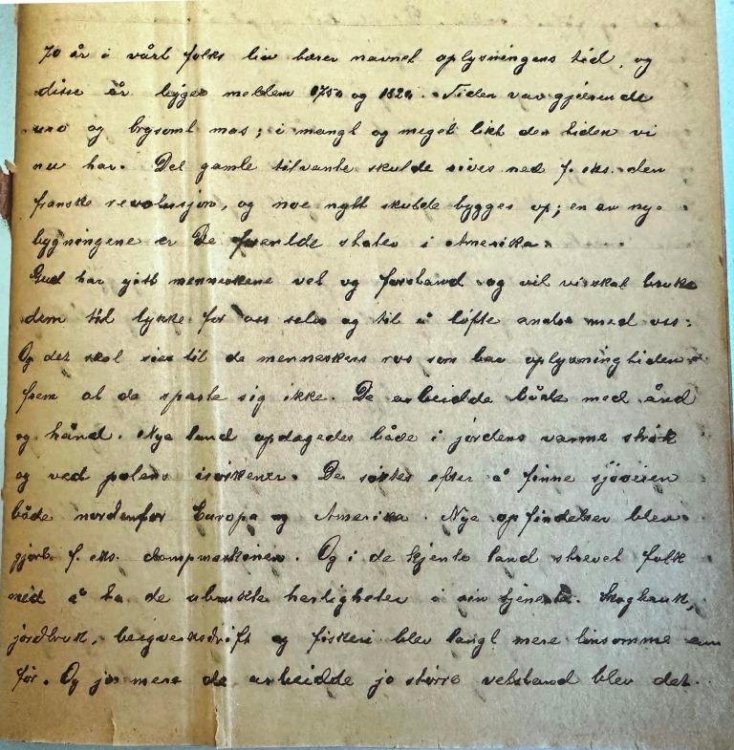 70 år i vårt folks liv bærer navnet oplysningens tid, og
disse år ligger mellem 1750 og 1820. Tiden var gjærende
uro og brysomt mas; i mangt og meget likt den tiden vi
nu har. Det gamle tilvante skulde rives ned f. eks. den
franske revolusjon, og noe nytt skulde bygges op; en av ny-
bygningene er De forenede stater i Amerika.
Gud har gitt menneskene vet og forstand og vil vi skal bruke
dem til lykke for oss selv og til å løfte andre med oss.
Og det skal sies til de menneskers ros som bar oplysningtiden
frem at de sparte sig ikke. De arbeidde både med ånd
og hånd. Nye land opdagedes både i jordens varme strøk
og ved polens iskanter. De søktes efter å finne sjøveien
både nordenfor Europa og Amerika. Nye opfindelser blev
gjort f. eks. dampmaskinen. Og i de kjente land strevet folk
med å ta de ubrukte herligheter i sin tjeneste. Skogbruk,
jordbruk, bergverksdrift og fiskeri blev langt mere lønsomme enn
før. Og jo mere de arbeidde jo større velstand blev det.